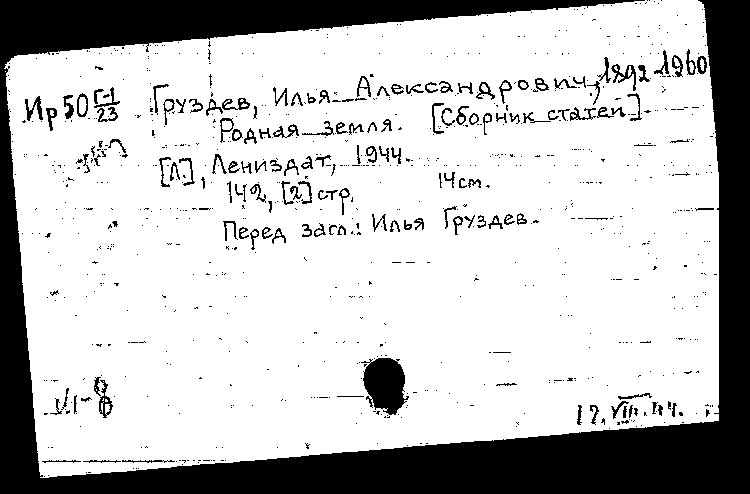 Ир 50 Г-1/23 Груздев, Илья Александрович, 1892-1960
Родная земля. [Сборник статей].
[Л.], Лениздат, 1944.
142, [2] стр. 14 см.
Перед загл.: Илья Груздев.
VI-8
12.VIII.44.